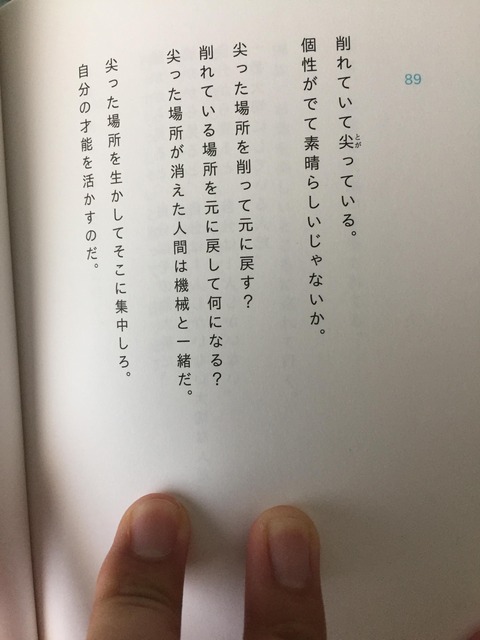 89
削れていて尖っている。
とが
個性がでて素晴らしいじゃないか。
尖った場所を削って元に戻す？
削れている場所を元に戻して何になる？
尖った場所が消えた人間は機械と一緒だ。
尖った場所を生かしてそこに集中しろ。
自分の才能を活かすのだ。